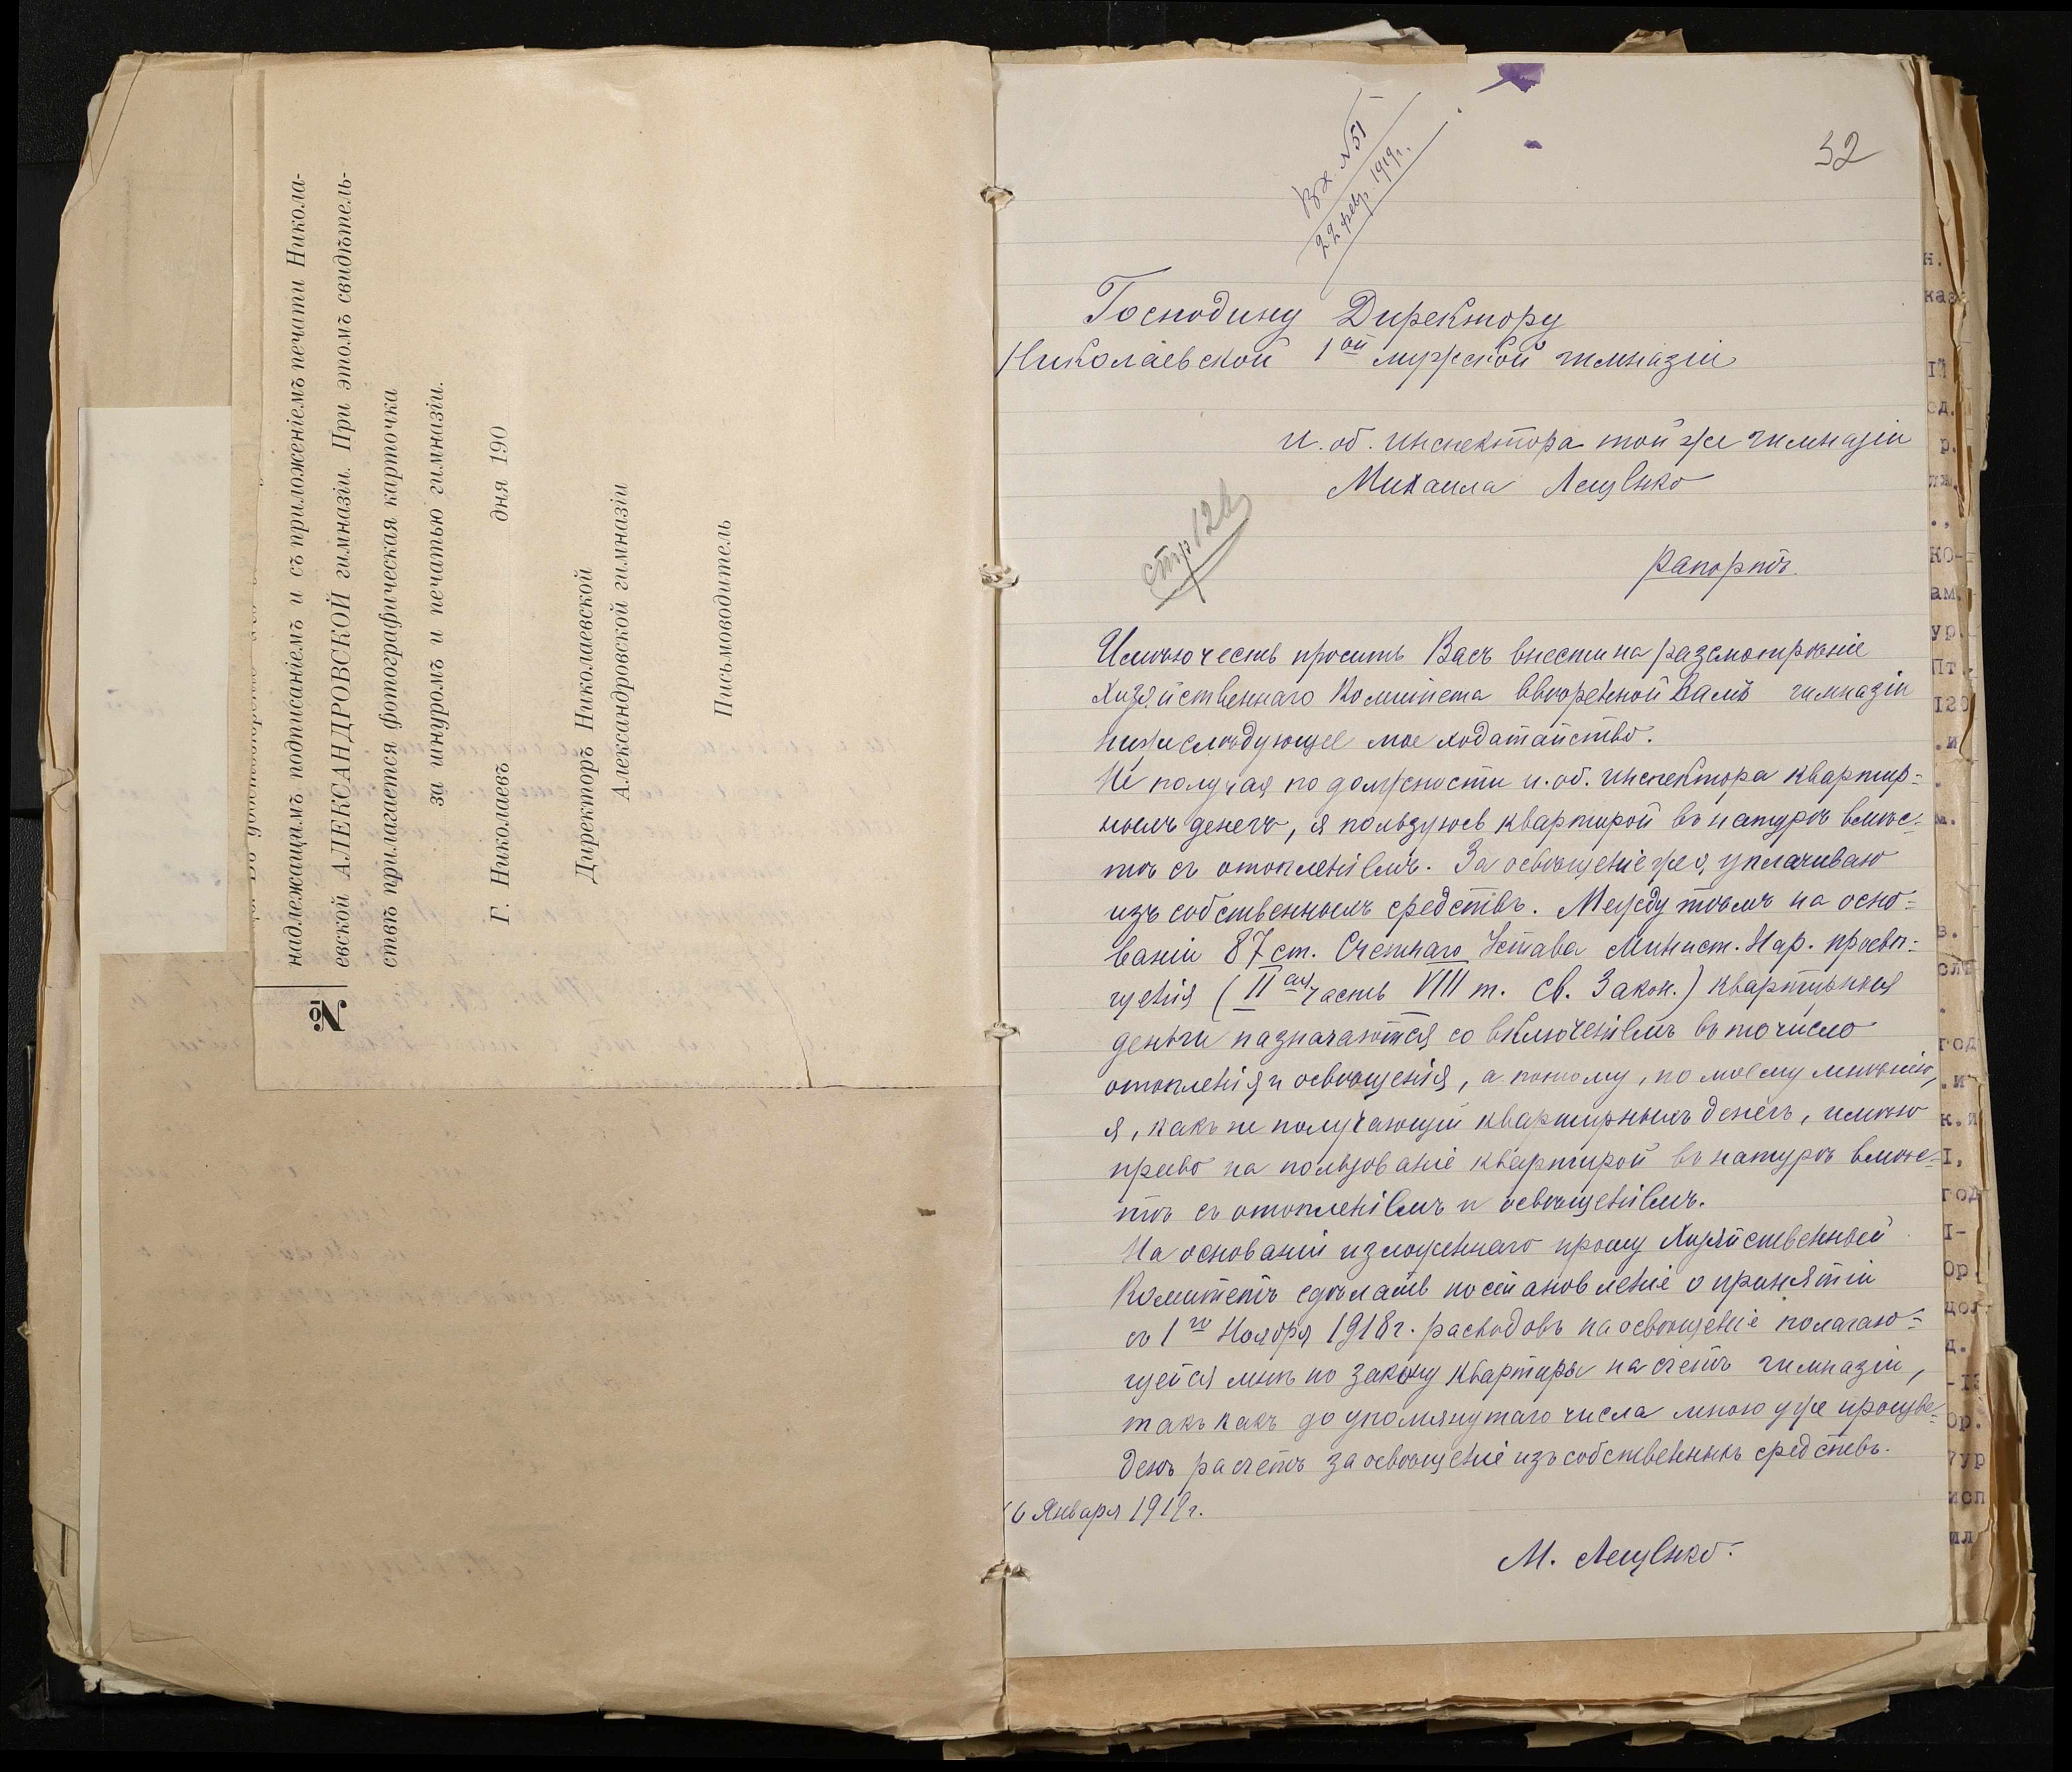 надлежащимъ подписаніемъ и съ приложеніемъ печати Никола-
евской АЛЕКСАНДРОВСКОЙ гимназіи. При этомъ свидѣтель-
ствѣ прилагается фотографическая карточка
за шнуромъ и печатью гимназіи.
Г. Николаевъ дня 190
Директоръ Николаевской
Александровской гимназіи
Письмоводитель
№
Вх. №51
22 февр. 1919г.
32
Господину Директору
Николаевской 1ой мужской гимназіи
И. об. инспектора той же гимназіи
Михаила Лещенко
стр 126
рапортъ.
Имѣю честь просить Васъ внести на разсмотрѣніе
Хозяйственнаго Комитета ввѣренной Вамъ гимназіи
нижеслѣдующее мое ходатайство.
Не получая по должности и. об. инспектора квартир=
ныхъ денегъ, я пользуюсь квартирой въ натурѣ вмѣс=
тѣ съ отопленіемъ. За освѣщеніе же, уплачиваю
изъ собственныхъ средствъ. Между тѣмъ на осно=
ваніи 87 ст. Счетнаго Устава Минист. Нар. просвѣ=
щенія (II ая часть VIII т. Св. Закон.) квартирныя
деньги назначаются со включеніемъ въ то число
отопленія и освѣщенія, а потому, по моему мнѣнію,
я, какъ не получающій квартирныхъ денегъ, имѣю
право на пользованіе квартирой въ натурѣ вмѣс=
тѣ съ отопленіемъ и освѣщеніемъ.
На основаніи изложеннаго прошу Хозяйственный
Комитетъ сдѣлать постановленіе о принятіи
съ 1го Ноября 1918г. расходовъ на освѣщеніе полагаю=
щейся мнѣ по закону квартиры на счетъ гимназіи,
такъ какъ до упомянутаго числа мною уже произве=
денъ расчетъ за освѣщеніе изъ собственныхъ средствъ.
Января 1919г.
М. Лещенко.